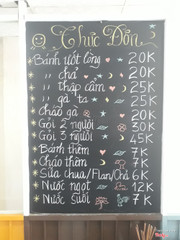 Thực Đơn
Bánh ướt lòng 20K
" chả 20K
" thập cẩm 25K
" gà ta 25K
Cháo gà 20K
Gỏi 2 người 30K
Gỏi 3 người 45K
Bánh thêm 7K
Cháo thêm 7K
Sữa chua/Flan/ 6K
Nước ngọt 12K
Nước suối 7K